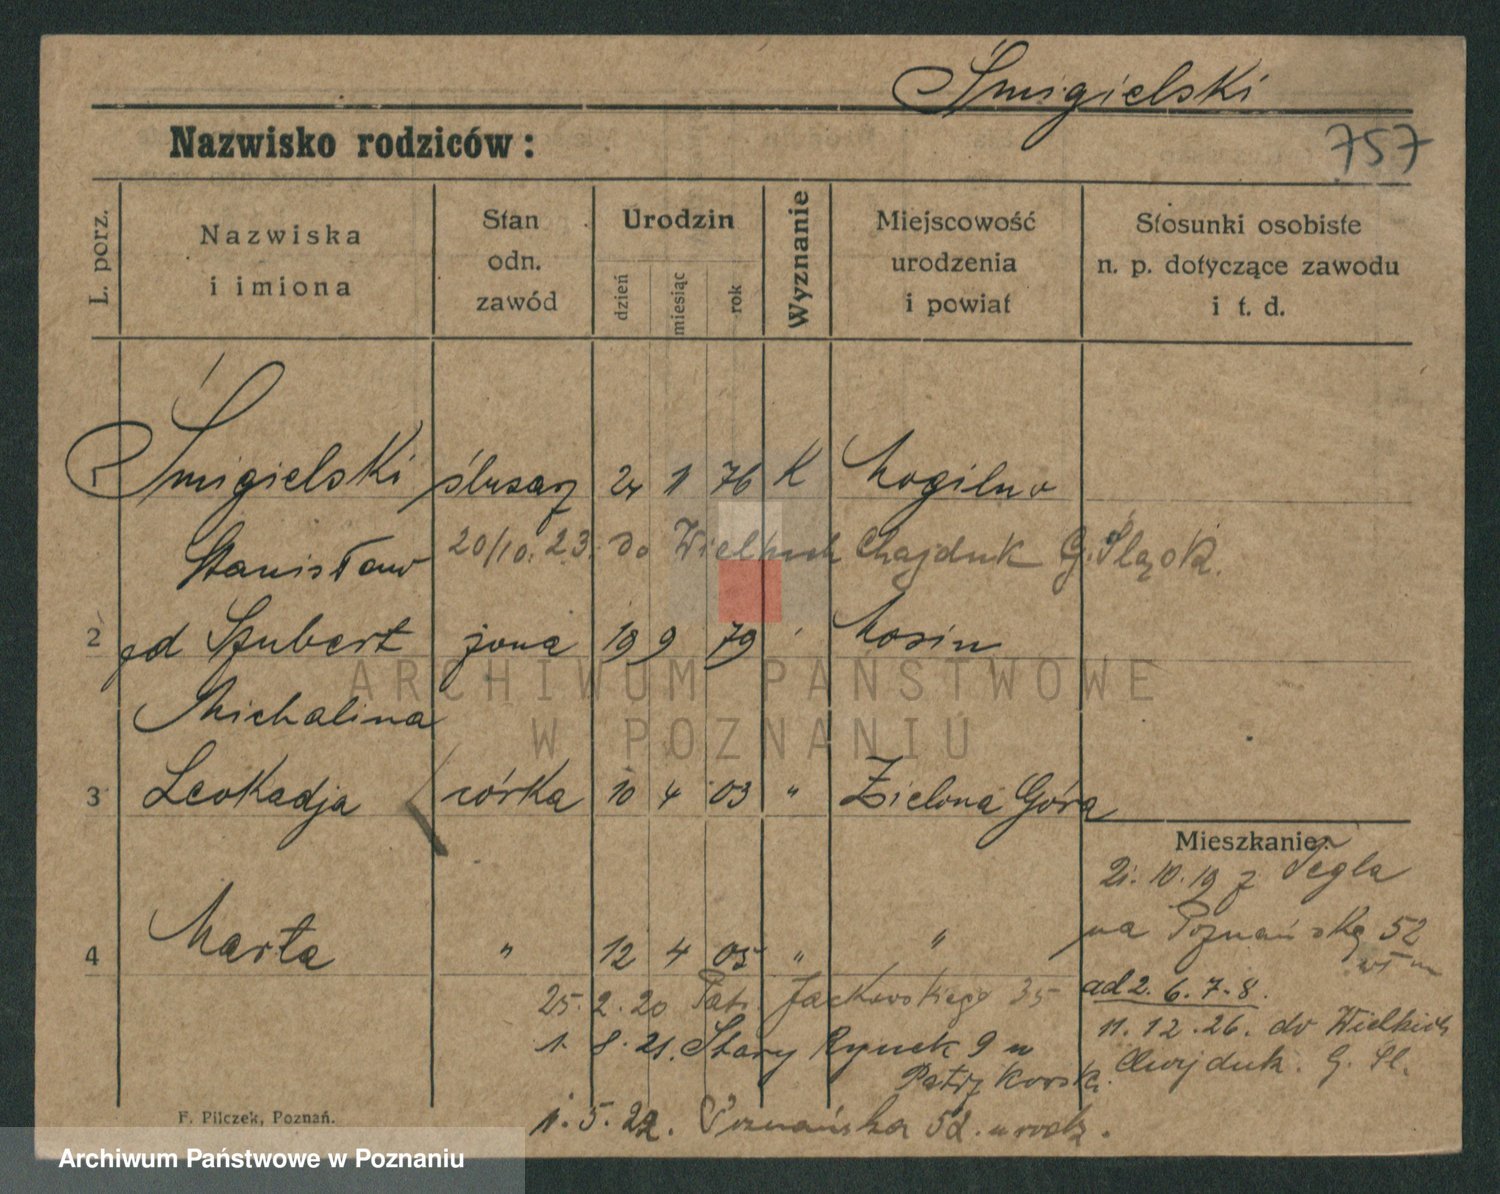 Śmigielski
757
Nazwisko rodziców:
L. porz.
Nazwiska
i imiona
Stan
odn.
zawód
Urodzin
dzień
miesiąc
rok
Wyznanie
Miejscowość
urodzenia
i powiat
Stosunki osobiste
n. p. dotyczące zawodu
i t. d.
1 Śmigielski ślusarz 24 1 76 K Mogilno
Stanisław 20/10. 23. do Wielkich Chajduk G. Śląsk.
2 gd Szubert żona 19 9 79 " Mosin
Michalina
3 Leokadja córka 10 4 03 " Zielona Góra
Mieszkanie:
21. 10. 19 z Tegla
na Poznańską 52
4 Marta " 12 4 05 " "
ad 2. 6. 7. 8.
11. 12. 26. do Wielkich
Chajduk. G. Śl.
25. 2. 20 Patr. Jackowskiego 35
1. 8. 21. Stary Rynek 9 u
1. 5. 22. Poznańska 52. u rodz.
F. Pilczek, Poznań.
ARCHIWUM PAŃSTWOWE
W POZNANIU
Archiwum Państwowe w Poznaniu